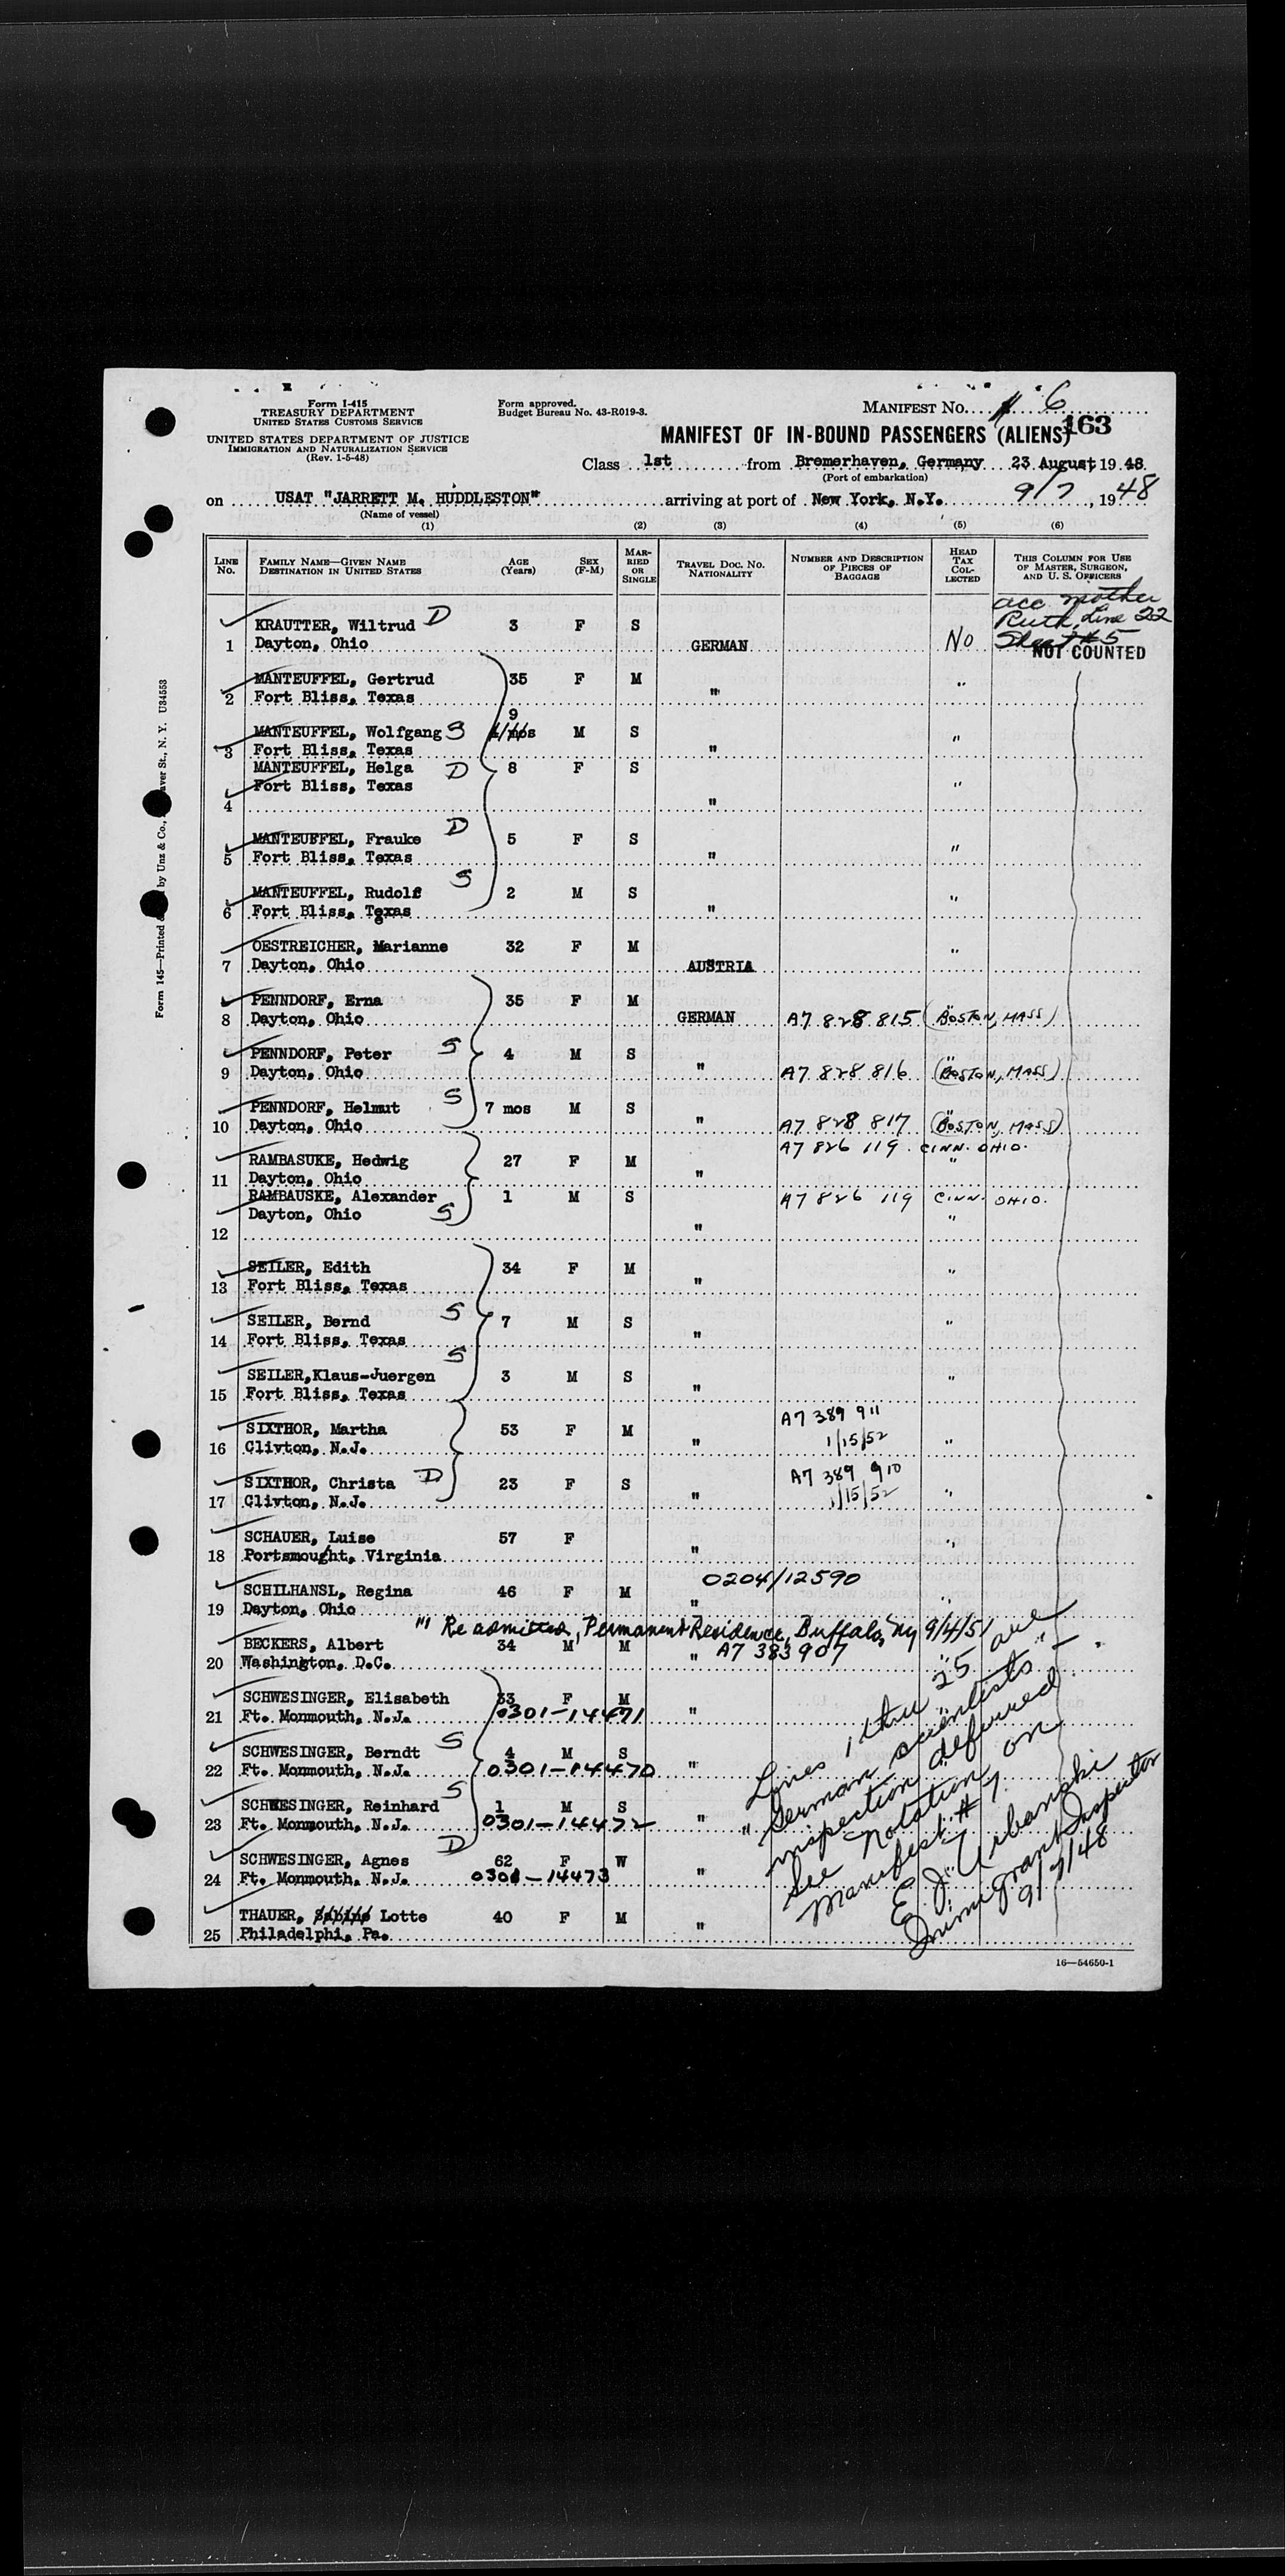 Form I-415
TREASURY DEPARTMENT
UNITED STATES CUSTOMS SERVICE
UNITED STATES DEPARTMENT OF JUSTICE
IMMIGRATION AND NATURALIZATION SERVICE
(Rev. 1-5-48)
Form approved.
Budget Bureau No. 43-R019-3.
MANIFEST NO. 6
163
MANIFEST OF IN-BOUND PASSENGERS (ALIENS)
Class 1st from Bremerhaven, Germany 23 August, 19 48
(Port of embarkation)
on USAT "JARRETT M. HUDDLESTON" arriving at port of New York, N.Y. 9/7, 19 48
(Name of vessel)
(1) (2) (3) (4) (5) (6)
LINE NO. FAMILY NAME—GIVEN NAME DESTINATION IN UNITED STATES AGE (Years) SEX (F-M) MARRIED OR SINGLE TRAVEL DOC. NO. NATIONALITY NUMBER AND DESCRIPTION OF PIECES OF BAGGAGE HEAD TAX COLLECTED THIS COLUMN FOR USE OF MASTER, SURGEON, AND U. S. OFFICERS
acc mother
Ruth, Line 22
Sheet #5
NOT COUNTED
KRAUTTER, Wiltrud D 3 F S
1 Dayton, Ohio GERMAN No
MANTEUFFEL, Gertrud 35 F M "
2 Fort Bliss, Texas "
9
MANTEUFFEL, Wolfgang S mos M S "
3 Fort Bliss, Texas "
MANTEUFFEL, Helga D 8 F S "
Fort Bliss, Texas
4 "
MANTEUFFEL, Frauke D 5 F S "
5 Fort Bliss, Texas "
MANTEUFFEL, Rudolf S 2 M S "
6 Fort Bliss, Texas "
OESTREICHER, Marianne 32 F M "
7 Dayton, Ohio AUSTRIA
PENNDORF, Erna 35 F M "
8 Dayton, Ohio GERMAN A7 828 815 (BOSTON, MASS)
PENNDORF, Peter S 4 M S "
9 Dayton, Ohio " A7 828 816 (BOSTON, MASS)
PENNDORF, Helmut S 7 mos M S "
10 Dayton, Ohio " A7 828 817 (BOSTON, MASS)
A7 826 119 CINN. OHIO.
RAMBASUKE, Hedwig 27 F M "
11 Dayton, Ohio "
RAMBAUSKE, Alexander 1 M S A7 826 119 CINN. OHIO.
Dayton, Ohio S "
12 "
SEILER, Edith 34 F M "
13 Fort Bliss, Texas "
SEILER, Bernd S 7 M S "
14 Fort Bliss, Texas "
SEILER,Klaus-Juergen S 3 M S "
15 Fort Bliss, Texas "
A7 389 911
SIXTHOR, Martha 53 F M
16 Clivton, N.J. " 1/15/52 "
SIXTHOR, Christa D 23 F S A7 389 910
17 Clivton, N.J. " 1/15/52 "
SCHAUER, Luise 57 F
18 Portsmought, Virginia " "
0204/12590
SCHILHANSL, Regina 46 F M
19 Dayton, Ohio " "
"" Re admitted, Permanent Residence, Buffalo, Ny 9/4/51
BECKERS, Albert 34 M M A7 383 907
20 Washington, D.C. " "
SCHWESINGER, Elisabeth 33 F M
21 Ft. Monmouth, N.J. 0301-14471 "
SCHWESINGER, Berndt S 4 M S
22 Ft. Monmouth, N.J. 0301-14470 "
SCHWESINGER, Reinhard S 1 M S
23 Ft. Monmouth, N.J. 0301-14472 "
SCHWESINGER, Agnes D 62 F W
24 Ft. Monmouth, N.J. 0301-14473 "
THAUER, Lotte 40 F M
25 Philadelphi, Pa. "
Lines 1 thru 25 are
"German scientists"—
inspection deferred—
See notation on
Manifest #1
E. J. Urbanski
Immigrant Inspector
9/7/48
16—54650-1
Form 145—Printed by Unz & Co., aver St., N. Y. U34553